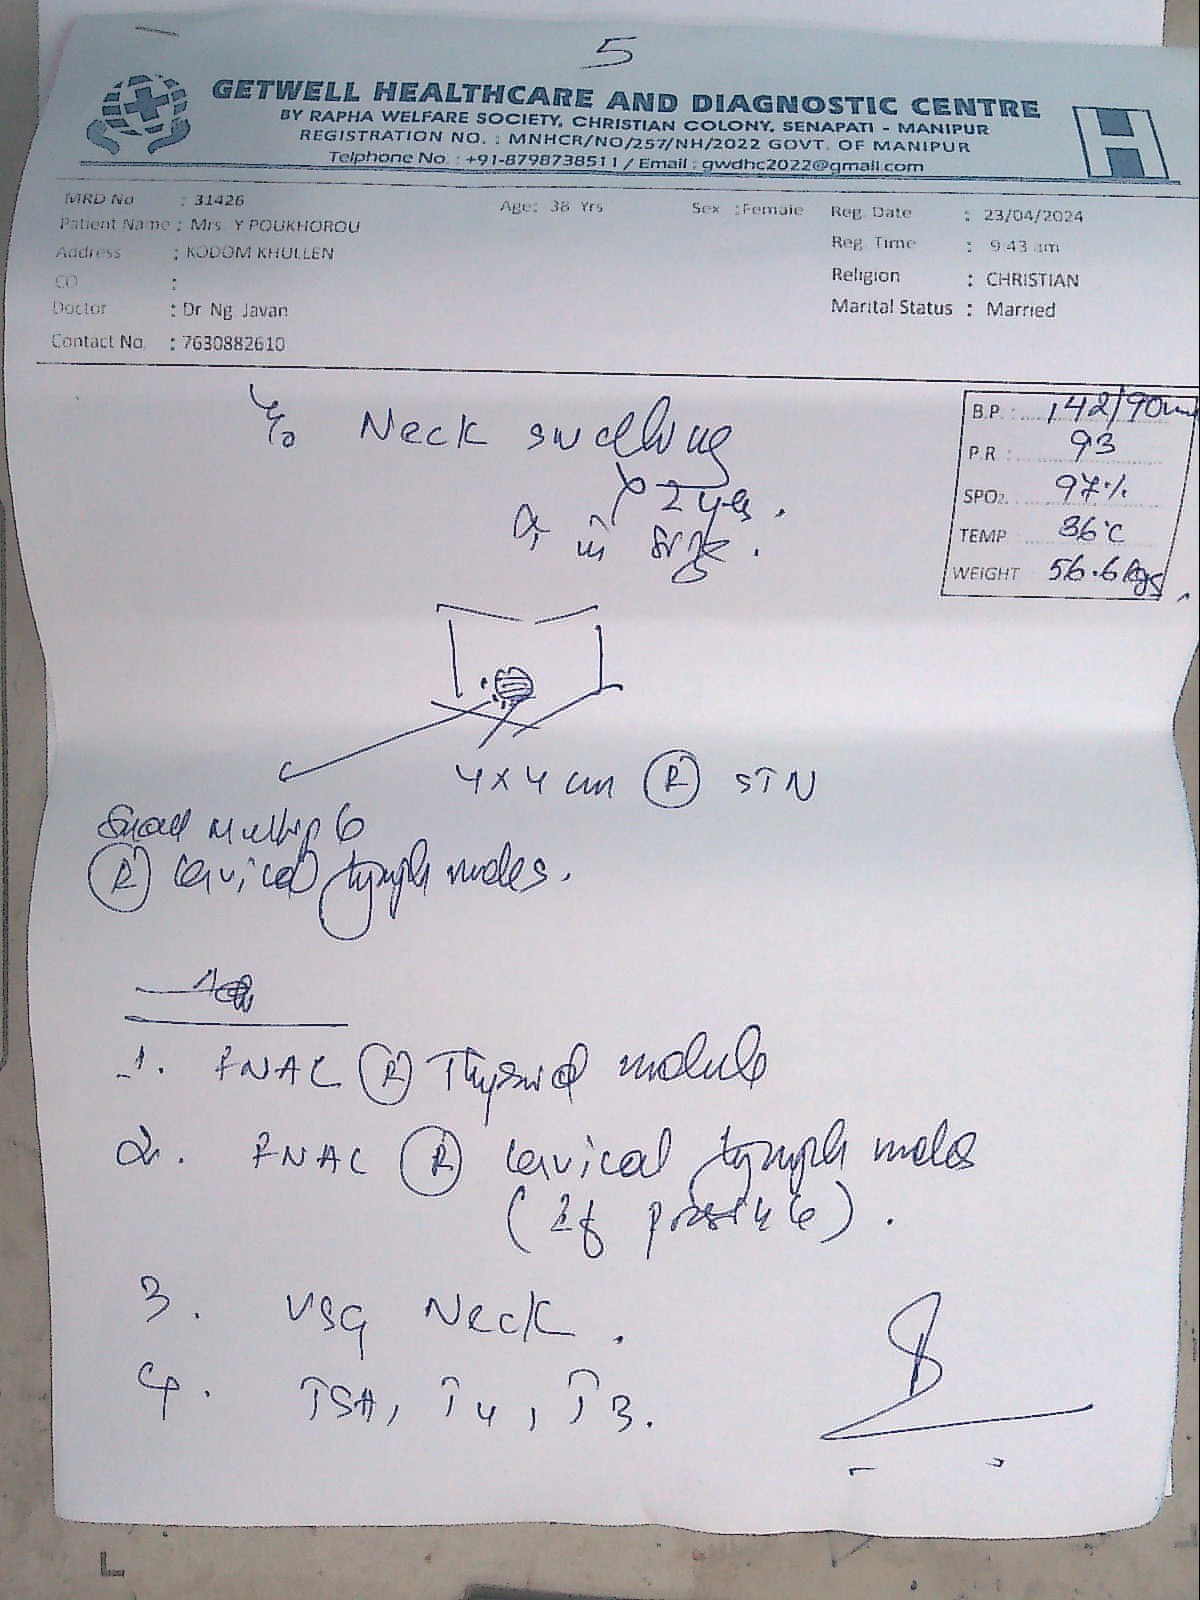 5
GETWELL HEALTHCARE AND DIAGNOSTIC CENTRE
BY RAPHA WELFARE SOCIETY, CHRISTIAN COLONY, SENAPATI - MANIPUR
REGISTRATION NO. : MNHCR/NO/257/NH/2022 GOVT. OF MANIPUR
Telphone No. : +91-8798738511 / Email : gwdhc2022@gmail.com
H
MRD No : 31426 Age: 38 Yrs Sex : Female Reg. Date : 23/04/2024
Patient Name : Mrs. Y POUKHOROU Reg. Time : 9:43 am
Address : KODOM KHULLEN Religion : CHRISTIAN
CO :
Doctor : Dr Ng. Javan Marital Status : Married
Contact No. : 7630882610
B.P. : 142/90
P.R : 93
SPO2. 97%
TEMP 36°C
WEIGHT 56.6 kgs
Neck swelling
2 yrs.
in size.
4 x 4 cm (R) STN
Small multiple
(R) cervical lymph nodes.
1. FNAC (R) Thyroid nodule
2. FNAC (R) cervical lymph nodes
(if possible).
3. USG Neck.
4. TSH, T4, T3.